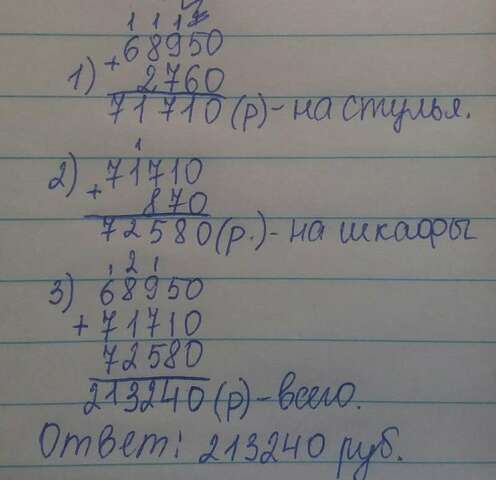 1 1 1
68950
1) +
2760
71710 (р) - на стулья.
1
2) 71710
+
870
72580 (р.) - на шкафы
1 2 1
3) 68950
+ 71710
72580
213240 (р) - всего.
Ответ: 213240 руб.